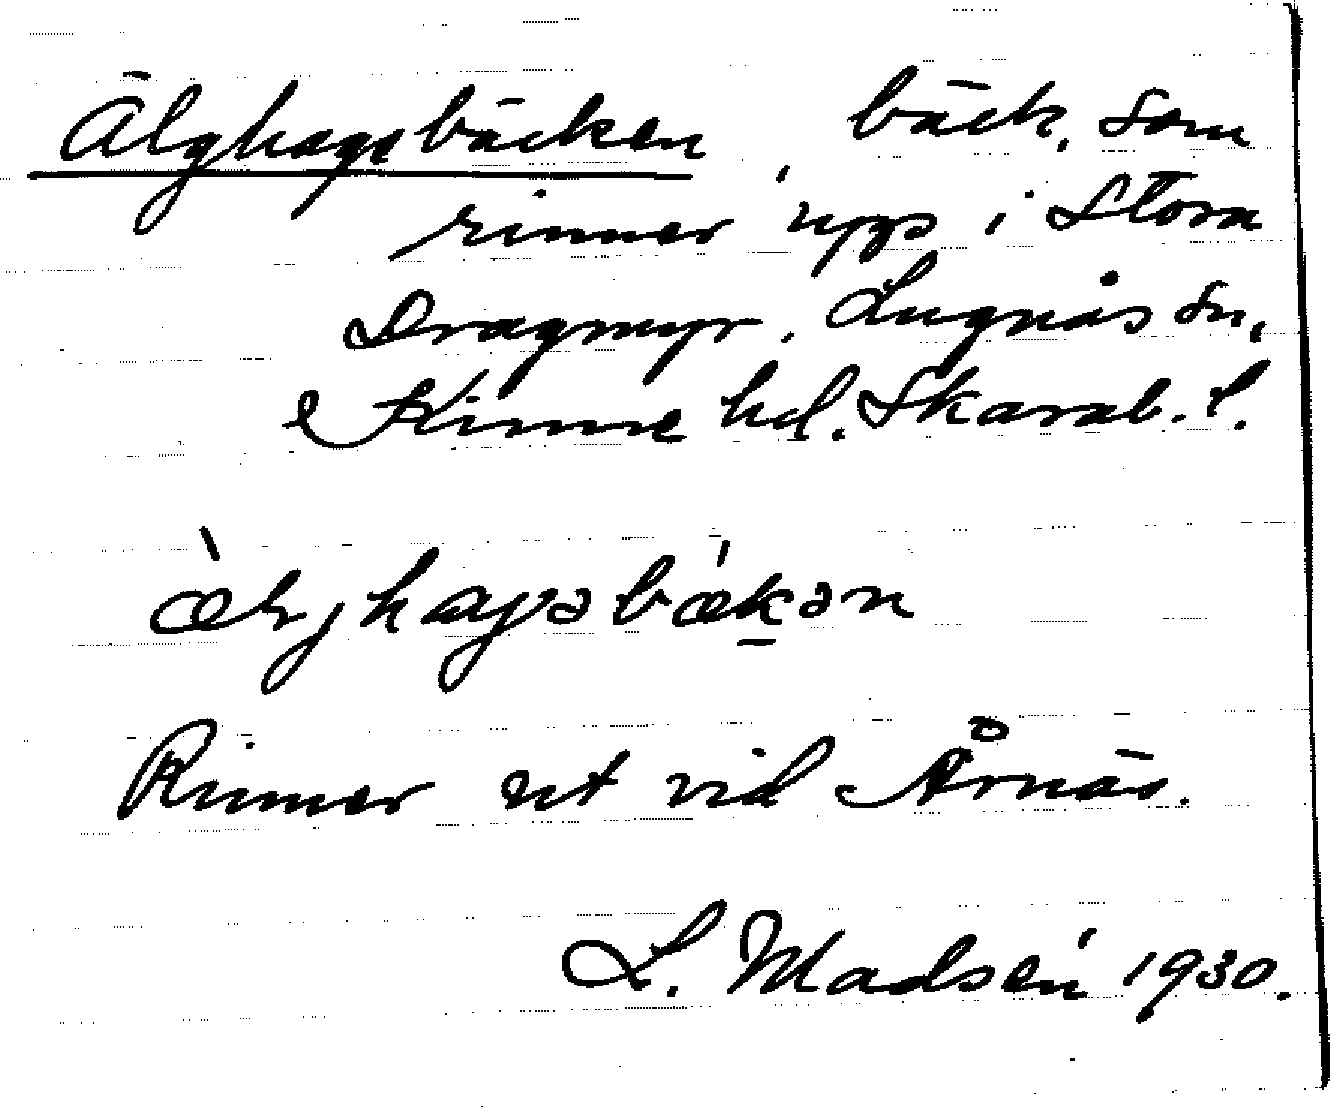 Älghagsbäcken, bäck, som
rinner upp i Stora
Dragmyr, Lugnås sn,
Kinne hd. Skarab. l.
æljhagsbækən
Rinner ut vid Årnäs.
L. Madsén 1930.